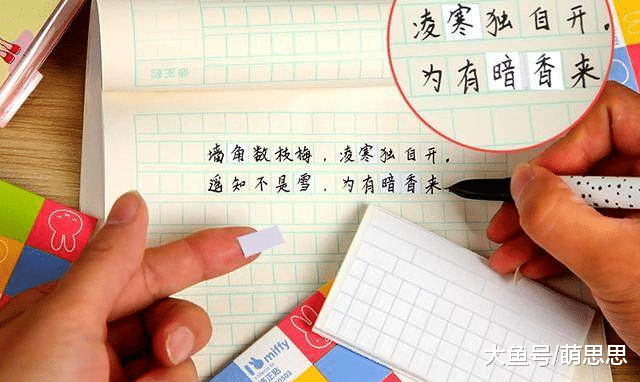 凌寒独自开.
为有暗香来
墙角数枝梅,凌寒独自开.
遥知不是雪,为有暗香来.
miffy
修正贴
大鱼号/萌思思